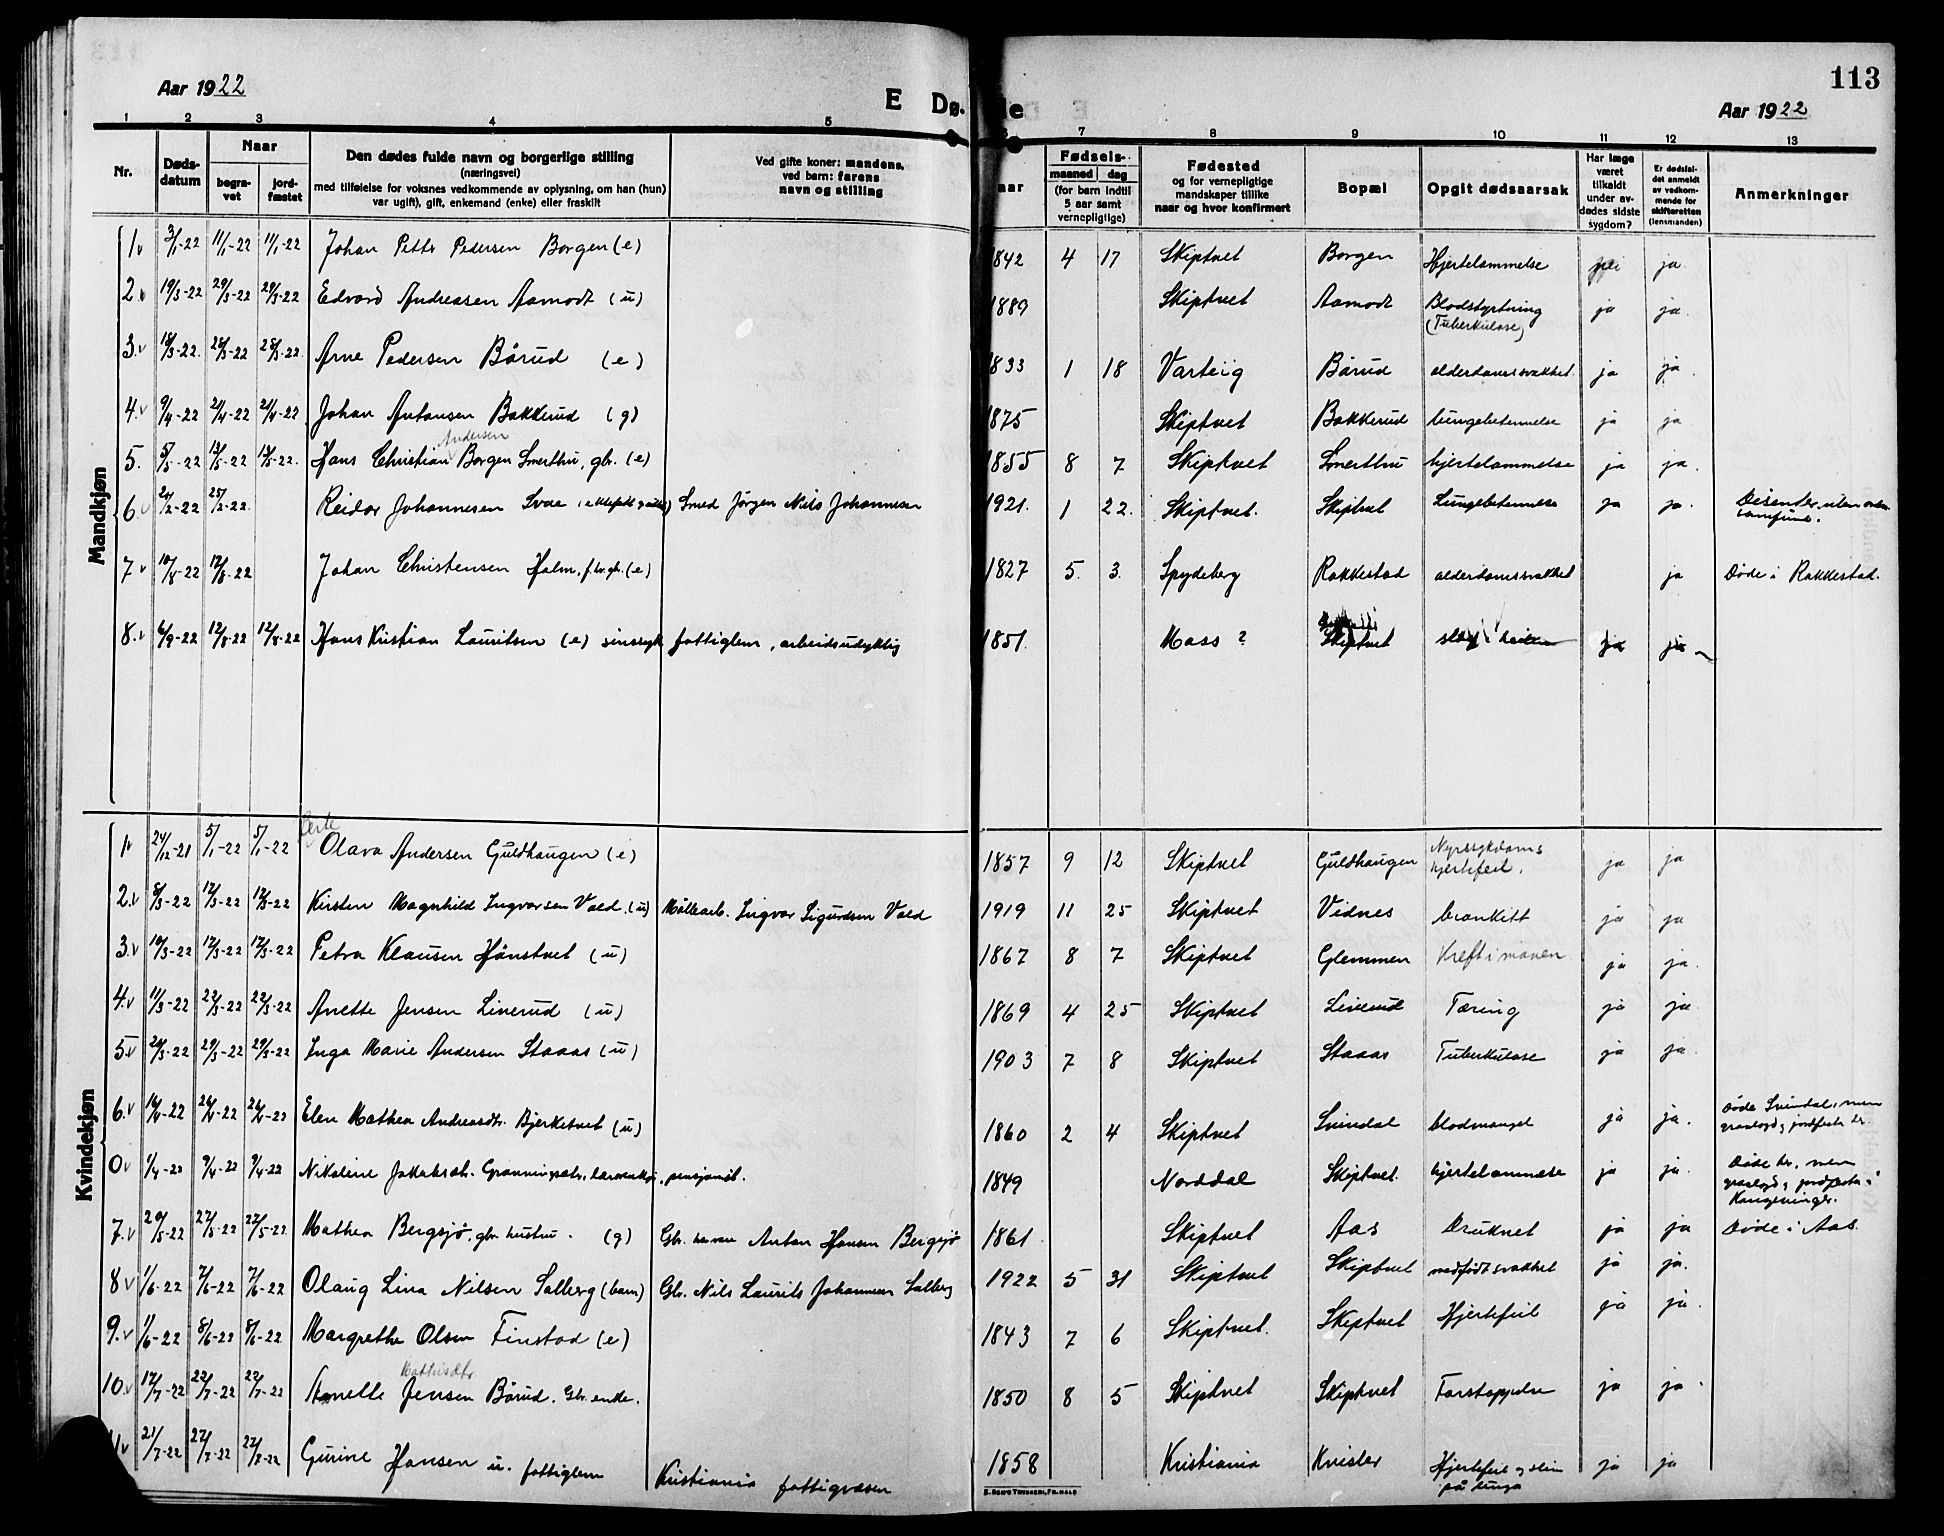 113
Aar 1922
E Dø. de
Aar 1922
1 2 3 4 5 7 8 9 10 11 12 13
Nr.
Døds-
datum
Naar
begra-
vet
jord-
fæstet
Den dødes fulde navn og borgerlige stilling
(næringsvei)
med tilføielse for voksnes vedkommende av oplysning, om han (hun)
var ugift), gift, enkemand (enke) eller fraskilt
Ved gifte koner: mandens,
ved børn: farens
navn og stilling
aar
Fødsels-
maaned dag
(for barn indtil
5 aar samt
vernepligtige)
Fødested
og for vernepligtige
mandskaper tillike
naar og hvor konfirmert
Bopæl
Opgit dødsaarsak
Har læge
været
tilkaldt
under av-
dødes sidste
sygdom?
Er dødsfal-
det anmeldt
av vedkom-
mende for
skifteretten
(lensmanden)
Anmerkninger
Mandkjøn
1 3/1-22 11/1-22 11/1-22 Johan Petter Pedersen Borgen (e) 1842 4 17 Skiptvet Borgen Hjertelammelse nei ja
2. 19/3-22 29/3-22 29/3-22 Edvard Andreasen Aamodt (u) 1889 Skiptvet Aamodt Blodstyrtning ja ja.
(Tuberkulose)
3. 18/3-22. 28/3-22 28/3-22. Arne Pedersen Bårud (e) 1833 1 18 Varteig Bårud alderdomssvakhet. ja ja.
4. 9/4-22 21/4-22 21/4-22 Johan Antonsen Bakkerud (g) 1875 Skiptvet Bakkerud lungebetennelse ja ja
Andersen
5. 5/5-22 12/5-22 12/5-22. Hans Christian Borgen Smerthu, gbr. (e) 1855 8 7 Skiptvet Smerthu hjertelammelse ja ja.
6 22-22 25/2-22. Reidar Johannesen Svae Smed Jørgen Nils Johannesen 1921. 1 22. Skiptvet. Skiptvet Lungebetennelse ja ja. Disenter, uten
samfund.
7 10/8-22 12/8-22 Johan Christensen Holm, f.hv.gb. (e) 1827 5. 3. Spydeberg Rakkestad alderdomssvakhet ja Døde i Rakkestad.
8. 6/9-22 12/8-22 12/8-22 Hans Kristian Lauritsen (e) sinssyk fattiglem, arbeidsudyktig 1851. Moss? Skiptvet ja ja
Kvindekjøn
Berte
1 24/12-21 5/1-22 5/1-22 Olava Andersen Guldhaugen (e) 1857 9 12 Skiptvet Guldhaugen Nyresykdom ja ja
hjertefeil.
2. 8/3-22 12/3-22 12/3-22 Kirsten Magnhild Ingvarsen Vold. (u) Møllearb. Ingvar Sigurdsen Vold 1919 11 25 Skiptvet Vidnes bronkitt ja ja
3. 10/3-22 17/3-22 17/3-22 Petra Klausen Hønstvet (u) 1867 8 7 Skiptvet Glemmen Kreft i maven ja ja.
4. 11/3-22 22/3-22 22/3-22 Anette Jensen Linerud (u) 1869 4 25 Skiptvet Linerud Tæring ja ja.
5 20/3-22 29/3-22 29/3-22 Inga Marie Andersen Staaas (u) 1903 7 8 Skiptvet Staaas Tuberkulose ja ja.
6. 16/4-22 26/4-22 26/4-22 Elen Mathea Andreasdtr. Bjerketvet (u) 1860 2 4 Skiptvet Svindal blodmangel ja ja. Døde Svindal, men
gravlagd, jordfestet her
0 1/4-22 9/4-22 9/4-22 Nikoline Jakobsdt. Grønningsæter, lærerenke, pensjonist. 1849 Norddal Skiptvet. hjertelammelse ja ja. Døde her, men
gravlagd, jordfestet i
Kongsvinger.
7. 20/5-22 27/5-22 22/5-22 Mathea Bergsjø, gbr. hustru. (g) Gbr. Anton Hansen Bergsjø 1861. Skiptvet Aas Druknet ja ja Døde i Aas.
8 1/6-22 7/6-22 7/6-22 Olaug Lina Nilsen Solberg (barn) Gbr. Nils Laurits Johannesen Solberg 1922 5 31 Skiptvet Skiptvet medfødt svakhet ja ja.
9. 1/6-22 8/6-22 8/6-22 Margrethe Olsen Finstad (e) 1843 7 6 Skiptvet. Skiptvet Hjertefeil ja ja.
Mathisdtr
10. 12/7-22 22/7-22 22/7-22 Anette Jensen Bårud. Gbr. enke. 1850 8 5 Skiptvet Skiptvet Forstoppelse ja ja
21/7-22 27/7-22 27/7-22 Gurine Hansen u. fattiglem Kristiania fattigvæsen 1858 Kristiania Kvisler Hjertefeil og slim ja ja
på lunga